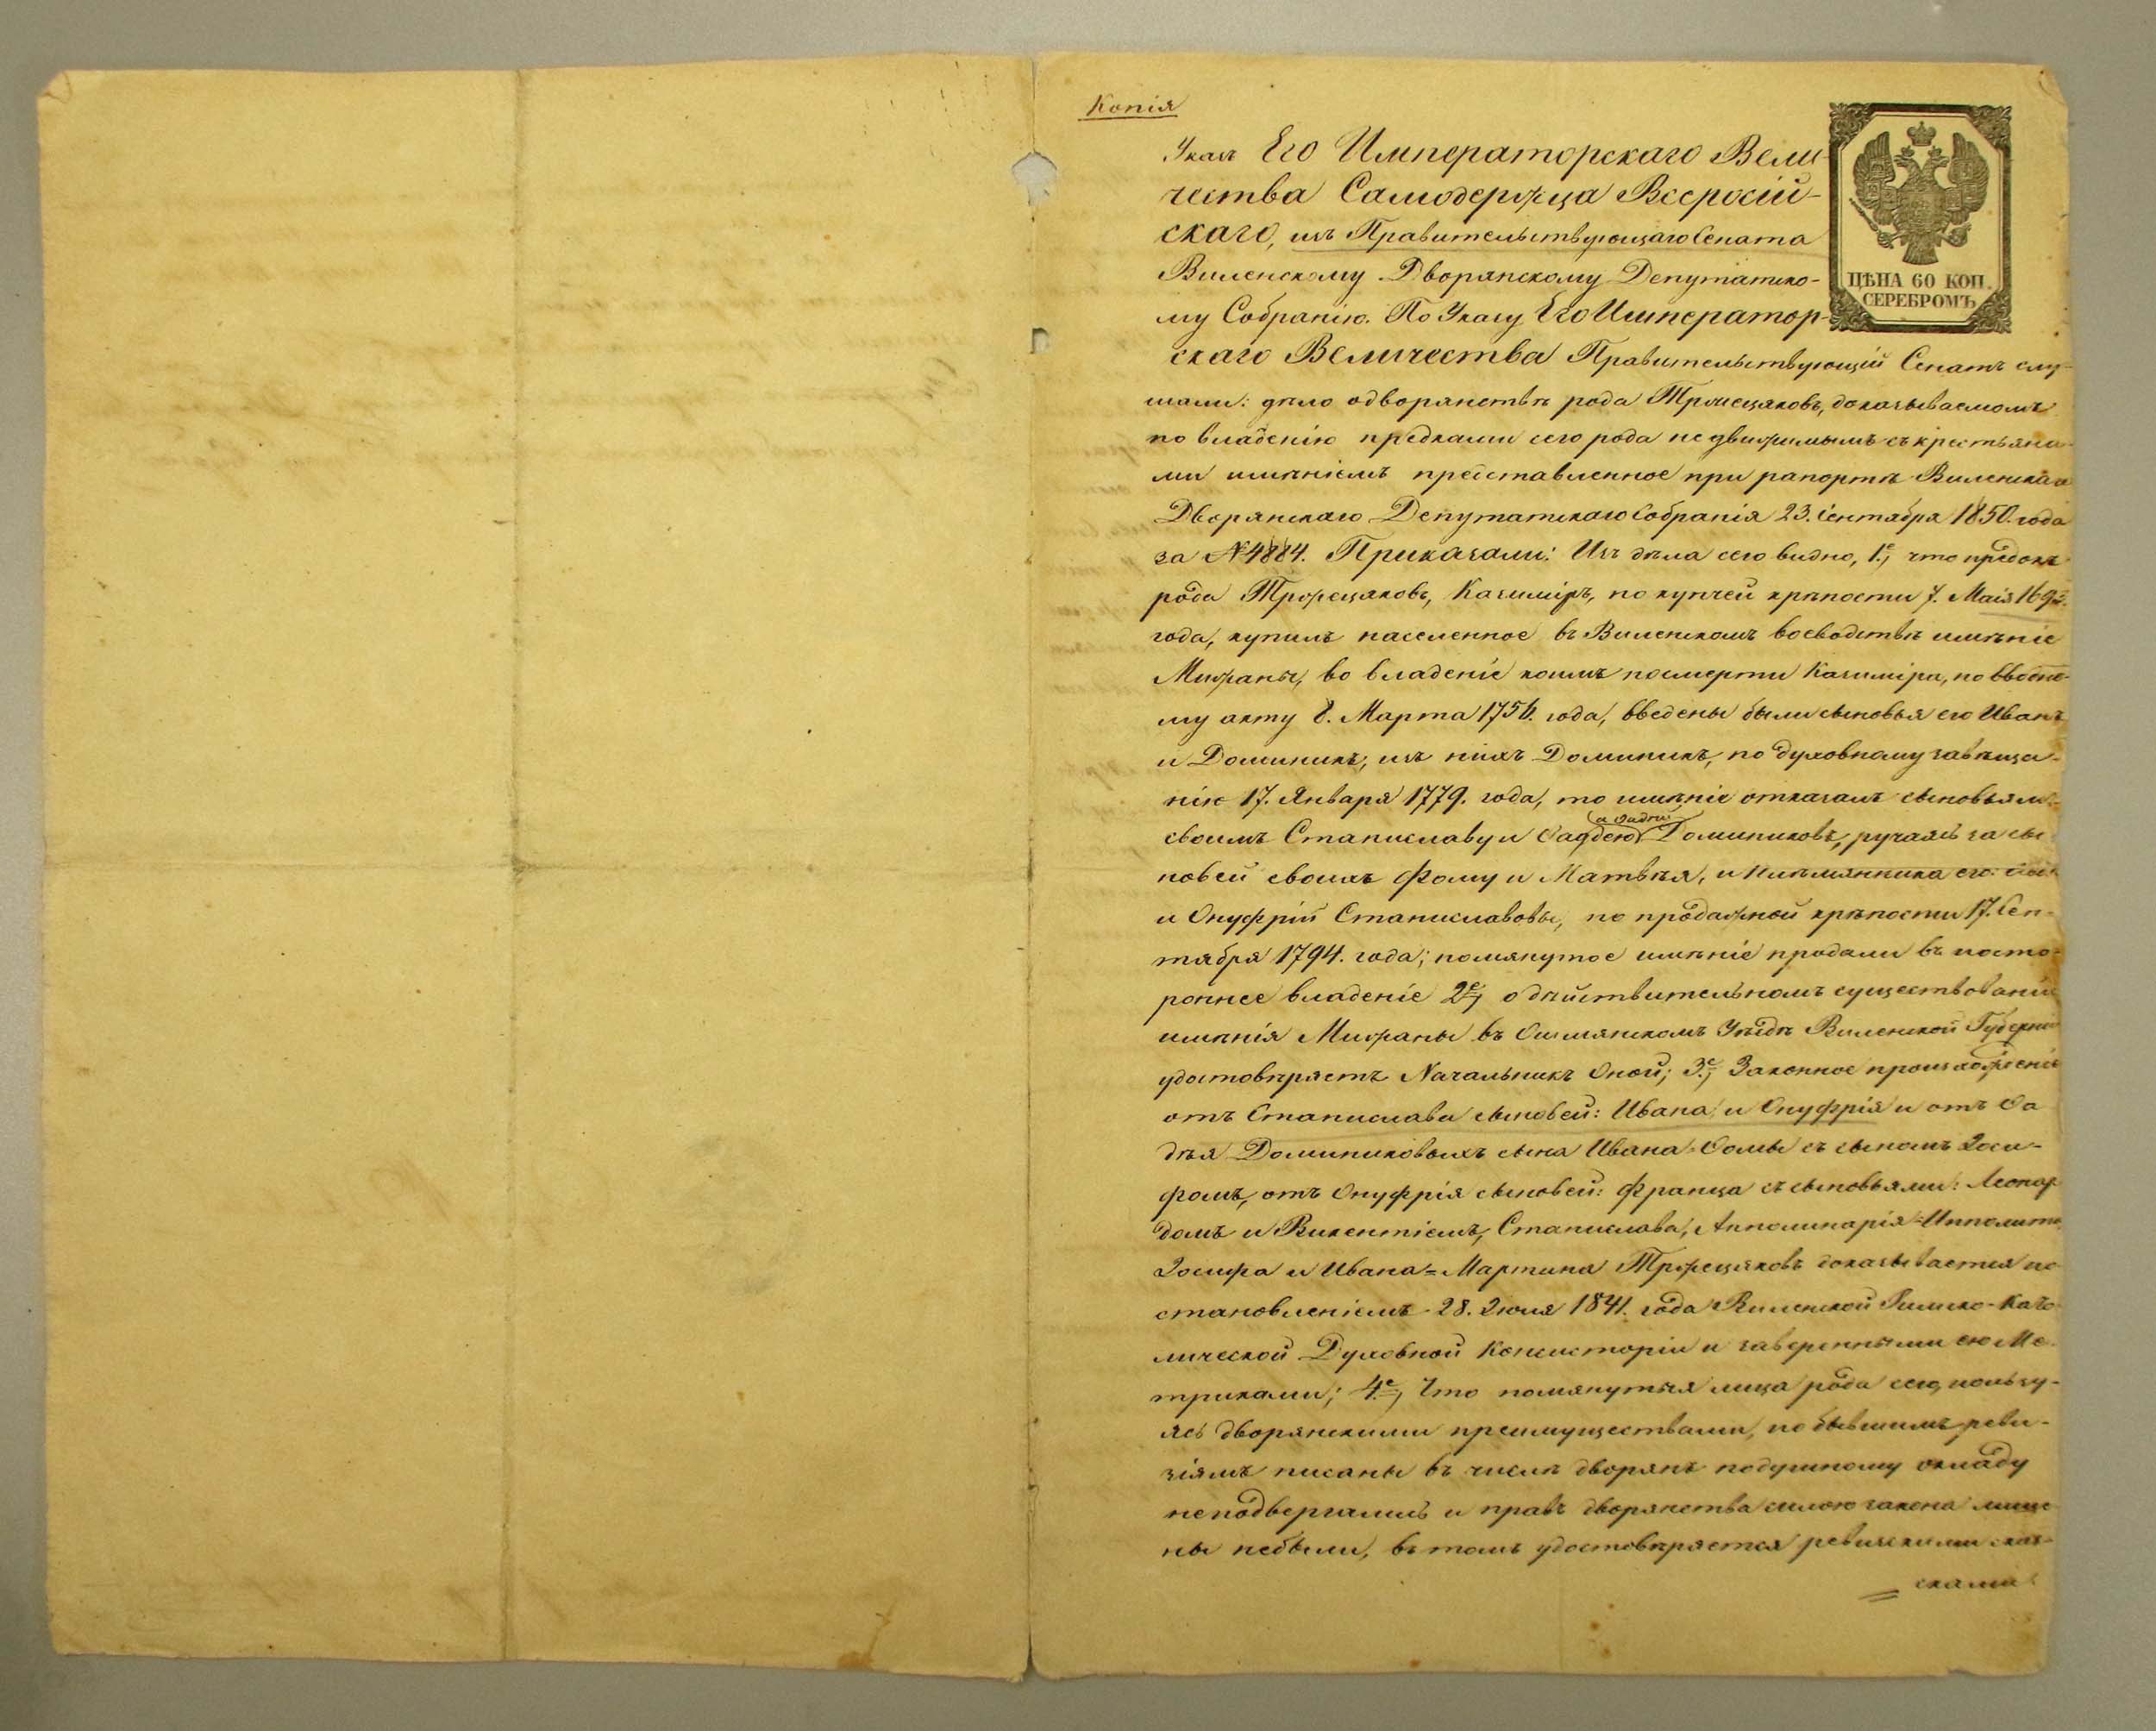 Копія
Указъ Его Императорскаго Вели-
чества Самодержца Всеросій-
скаго, изъ Правительствующаго Сената
Виленскому Дворянскому Депутатско-
му Собранію. По Указу Его Император-
скаго Величества Правительствующій Сенатъ слу-
шали: дѣло одворянствѣ рода Тржецяковъ, доказываемомъ
по владѣнію предками сего рода недвижимымъ съ крестьяна-
ми имѣніемъ представленное при рапортѣ Виленскаго
Дворянскаго Депутатскаго Собранія 23. Сентября 1850. года
за №4884. Приказали: Изъ дѣла сего видно, 1.е, что предокъ
рода Тржецяковъ, Казиміръ, по купчей крѣпости 7. Маія 169
года, купилъ населенное въ Виленскомъ воеводствѣ имѣніе
Мижаны, во владеніе коимъ посмерти Казиміра, по вводно-
му акту 8. Марта 1756. года, введены были сыновья его Иванъ
и Доминикъ, изъ нихъ Доминикъ, по духовному завѣща-
нію 17. Января 1779. года, то имѣніе отказалъ сыновьям
своимъ Станиславу и Ѳаддею Доминиковъ, ручаясь за сы-
новей своихъ Фому и Матвѣя, и племянника его
и Онуфрій Станиславовы, по продажной крѣпости 17. Сен-
тября 1794. года; помянутое имѣніе продали въ посто-
роннее владеніе 2.е, о дѣйствительномъ существованіи
имѣнія Мижаны въ Ошмянскомъ Уѣздѣ Виленской Губерніи
удостовѣряетъ Начальникъ Оной; 3.е, Законное происхожденіе
отъ Станислава сыновей: Ивана и Онуфрія и отъ Ѳа
дѣя Доминиковыхъ сына Ивана-Ѳомы съ сыномъ Іоси-
фомъ, отъ Онуфрія сыновей: Франца съ сыновьями: Леонар
домъ и Викентіемъ, Станислава, Апполинарія=Ипполита,
Іосифа и Ивана=Мартина Тржецяковъ доказывается по
становленіемъ 28. Іюля 1841. года Виленской Римско-Като
лической Духовной Консисторіи и заверенными ею Ме-
триками; 4.е, Что помянутыя лица рода сего, пользу-
ясь дворянскими преимуществами, по бывшимъ реви-
зіямъ писаны въ числѣ дворянъ подушному окладу
неподвергались и правъ дворянства силою закона лише
ны небыли, въ томъ удостовѣряется ревизскими сказ-
сками
ЦѢНА 60 КОП.
СЕРЕБРОМЪ